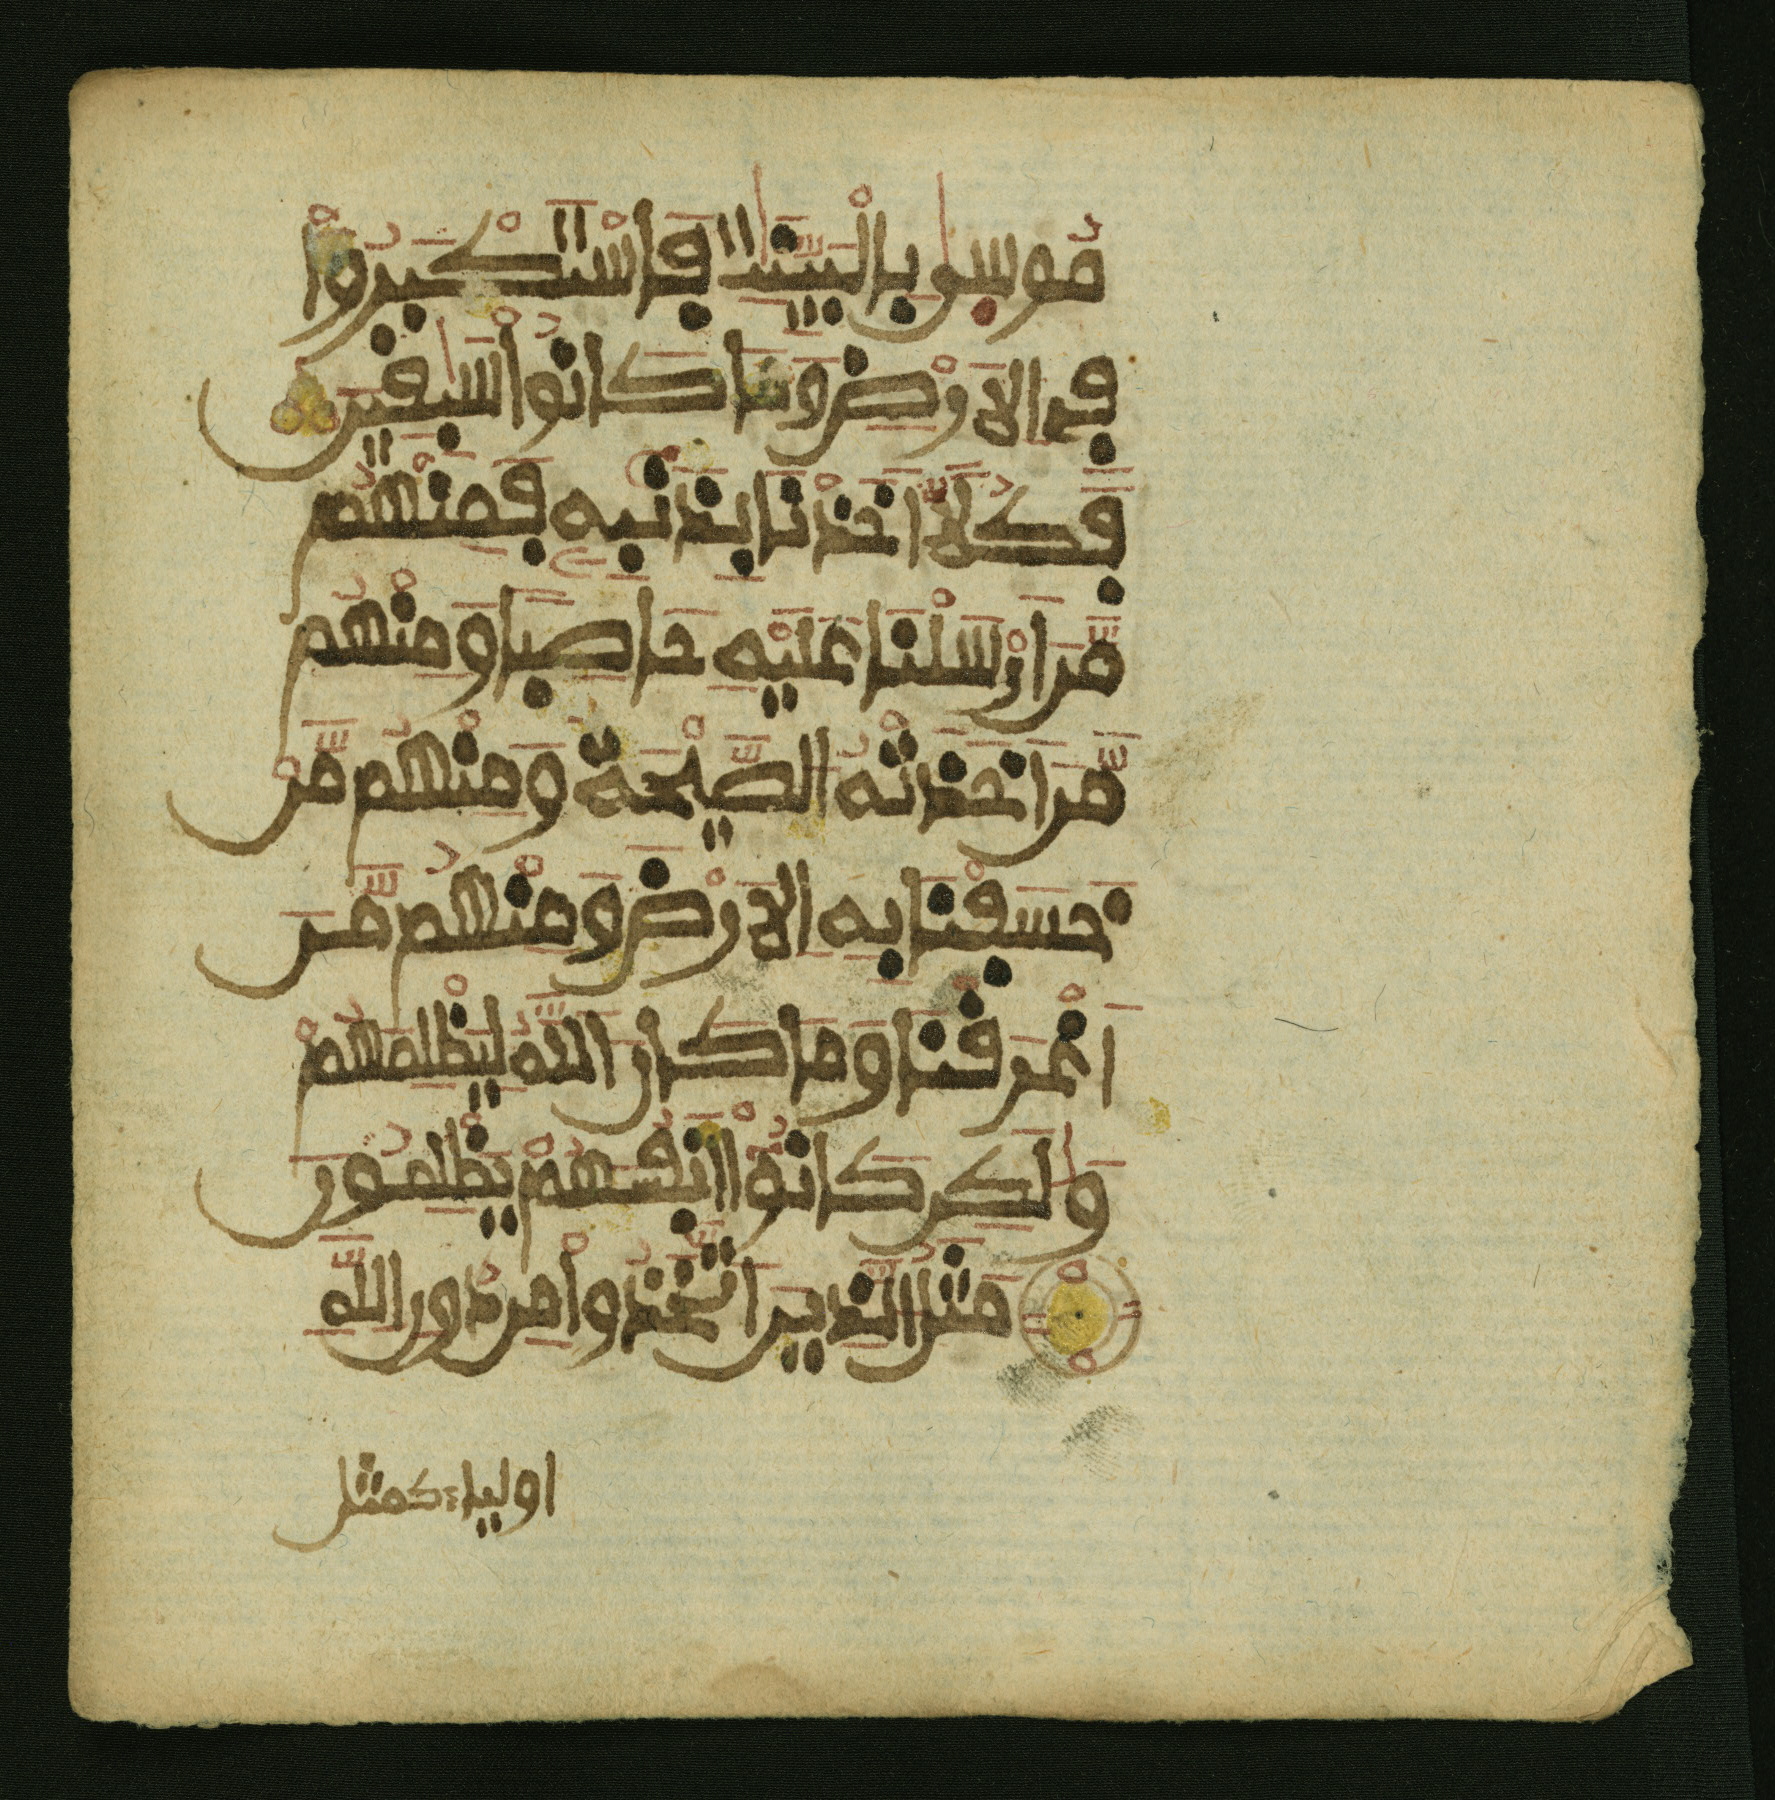 مُوسٜىٰ بِالْبَيِّنَٰتِ فَاسْتَكْبَرُواْ
فِے الَارْضِ وَمَا كَانُواْ سَٰبِفِينَ
فَكُلّاً اَخَذْنَا بِذَنۢبِهِۦ فَمِنْهُم
مَّنَ اَرْسَلْنَا عَلَيْهِ حَاصِباً وَمِنْهُم
مَّنَ اَخَذَتْهُ الصَّيْحَةُ وَمِنْهُم مَّنْ
خَسَفْنَا بِهِ الَارْضَ وَمِنْهُم مَّنَ
اَغْرَفْنَا وَمَا كَانَ اللَّهُ لِيَظْلِمَهُمْ
وَلَٰكِن كَانُواْ أَنفُسَهُمْ يَظْلِمُونَ
مَثَلُ الَّذِينَ اَتَّخَذُواْ مِن دُونِ اللَّهِ
اولياء كمثل